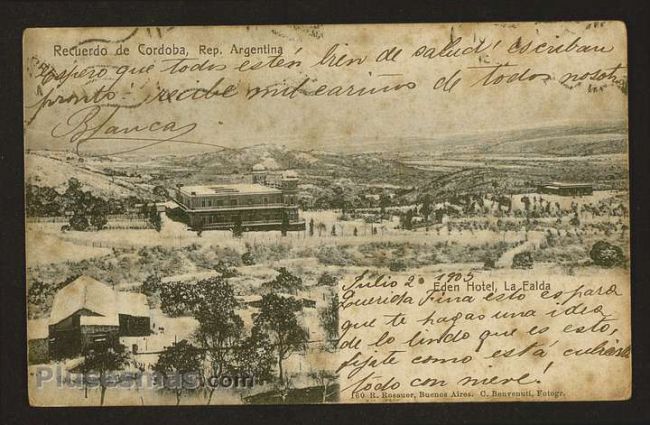 Recuerdo de Cordoba, Rep. Argentina
Espero que todos estén bien de salud! escriban
pronto! recibe mil cariños de todos nosot
Blanca
Julio 2. 1905
Eden Hotel, La Falda
Querida Fina esto es para
que te hagas una idea
de lo lindo que es esto,
fijate como está cubierto
todo con nieve!
160 R. Rosauer, Buenos Aires. C. Benvenuti, Fotogr.
Plusesmas.com